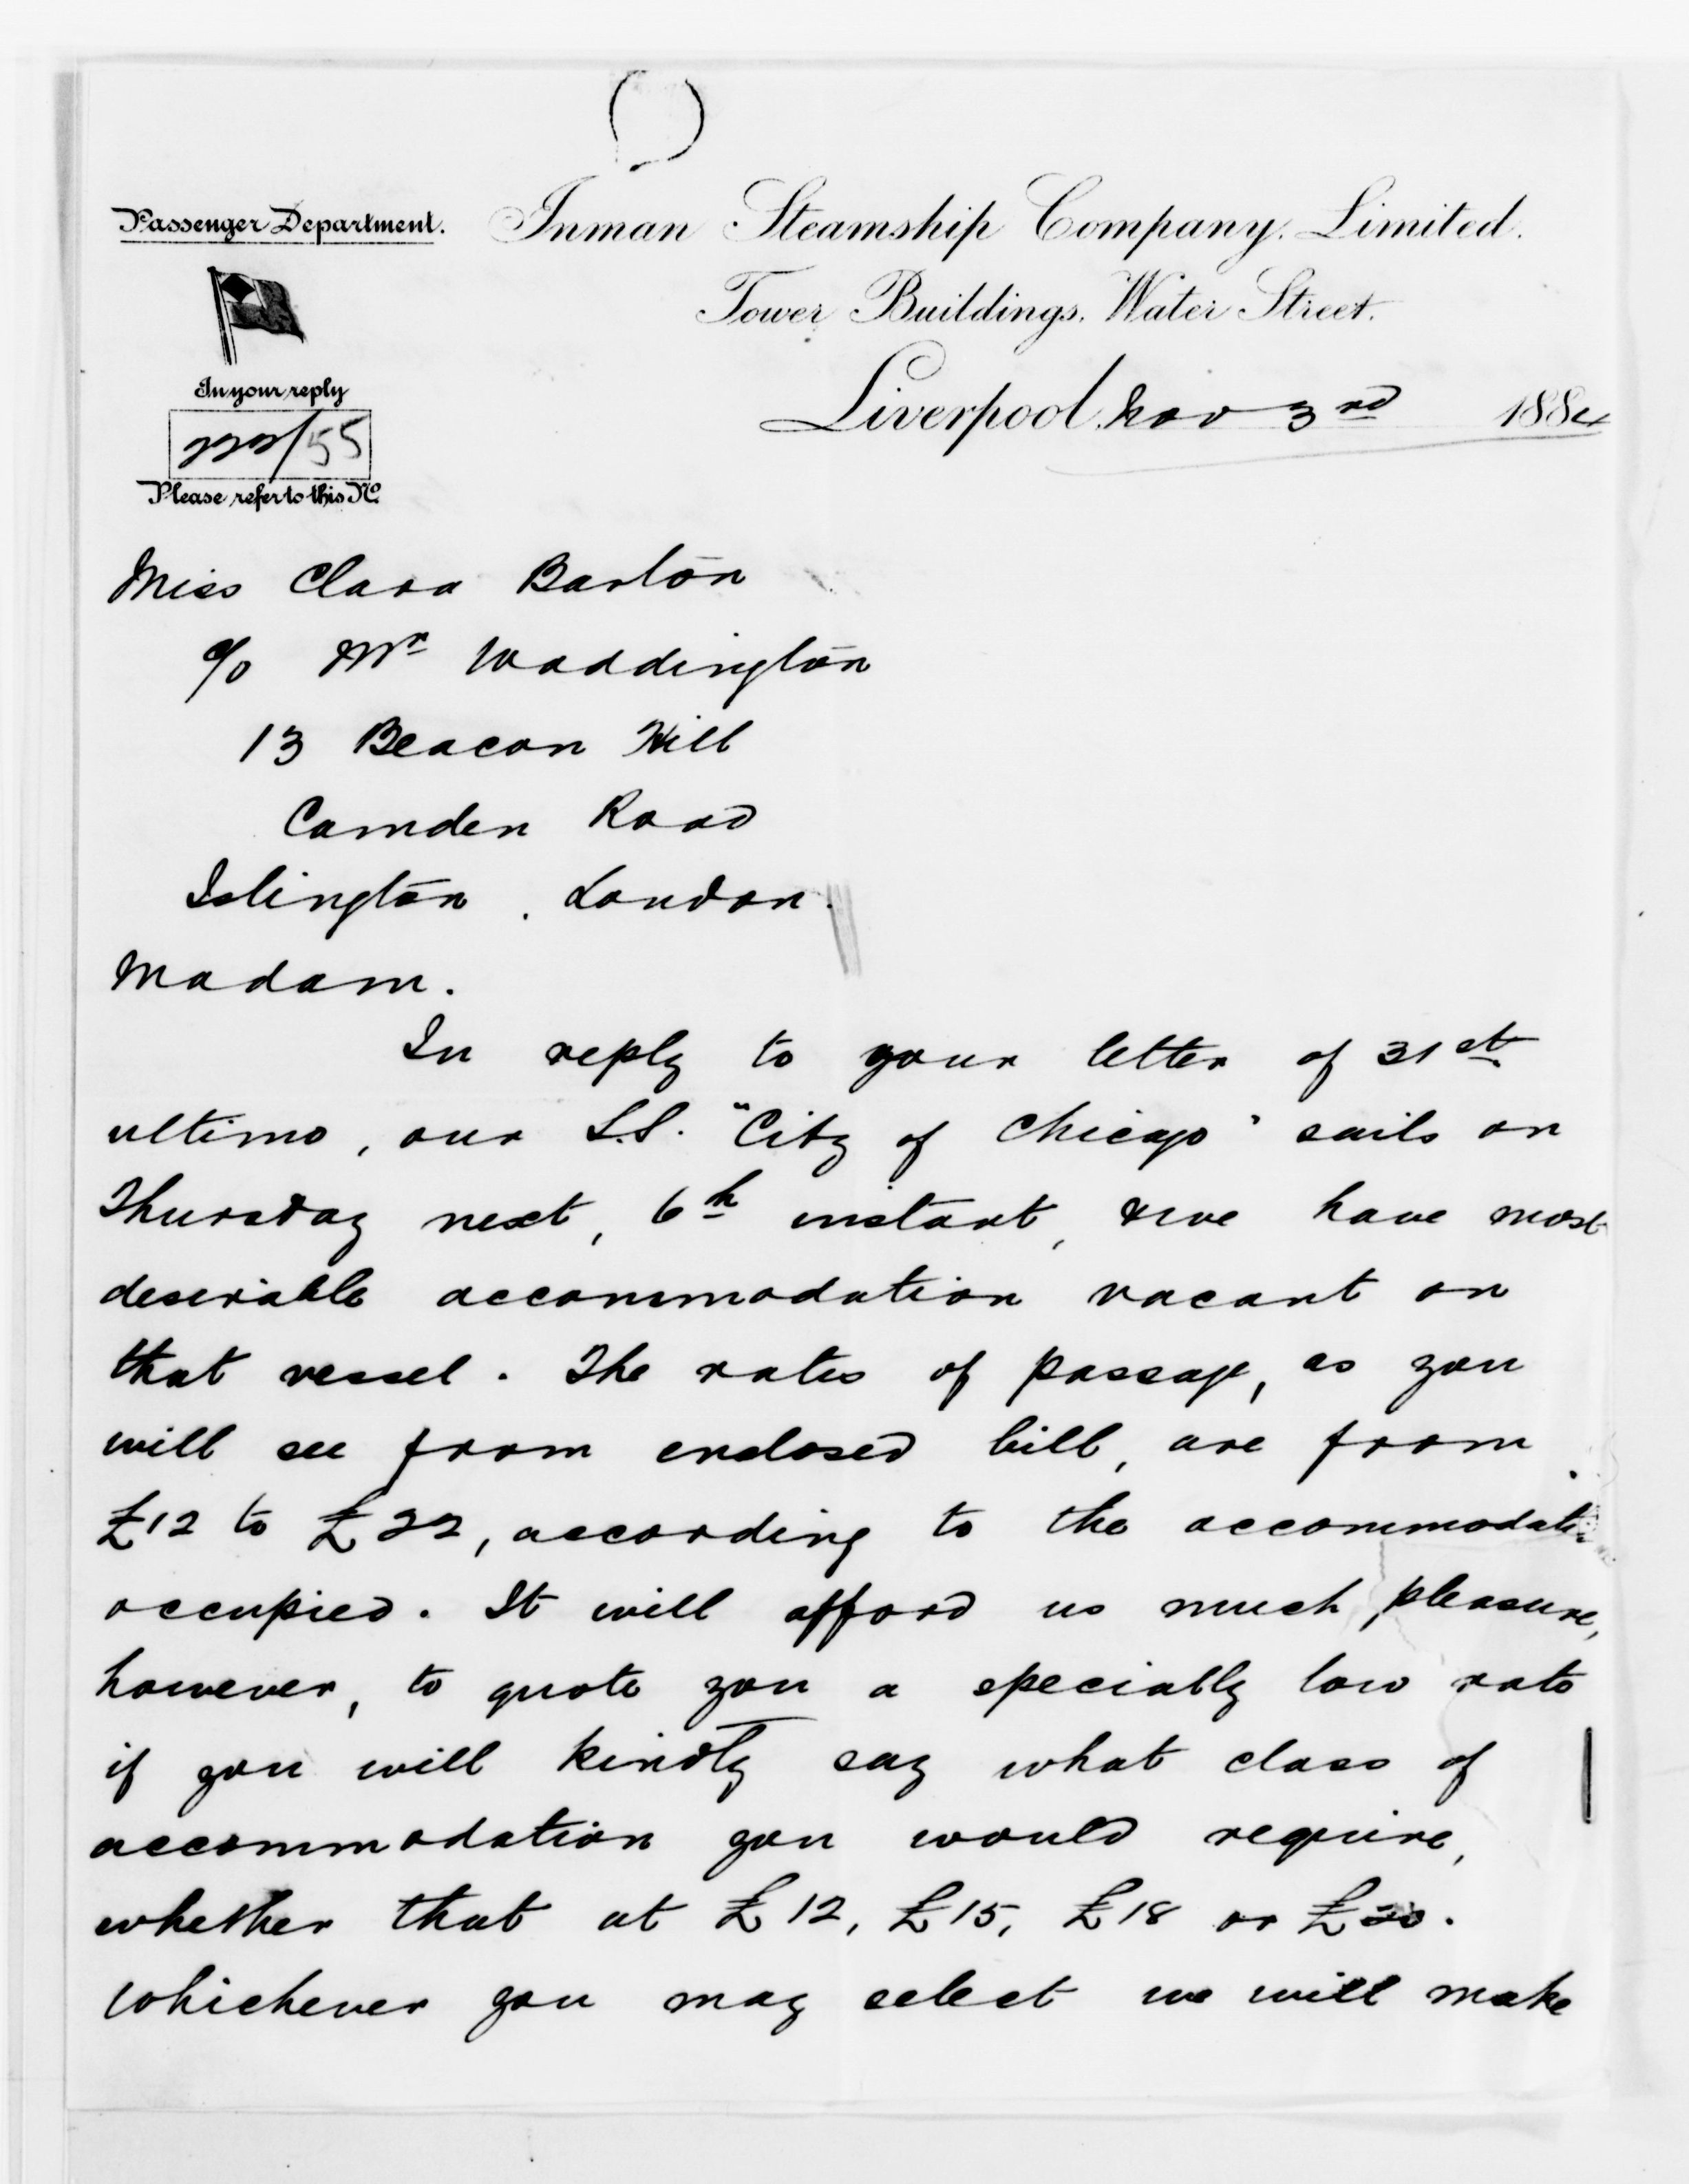 Passenger Department. Inman Steamship Company, Limited.
Tower Buildings, Water Street.
Liverpool, Nov 3rd 1884
In your reply
/55
Please refer to this No.
Miss Clara Barton
c/o Mr Waddington
13 Beacon Hill
Camden Road
Islington, London.
Madam.
In reply to your letter of 31st
ultimo, our S.S. "City of Chicago" sails on
Thursday next, 6th instant, & we have most
desirable accommodation vacant on
that vessel. The rates of passage, as you
will see from enclosed bill, are from
£12 to £22, according to the accommodati
occupied. It will afford us much pleasure,
however, to quote you a specially low rate
if you will kindly say what class of
accommodation you would require,
whether that at £12, £15, £18 or £20.
Whichever you may select we will make